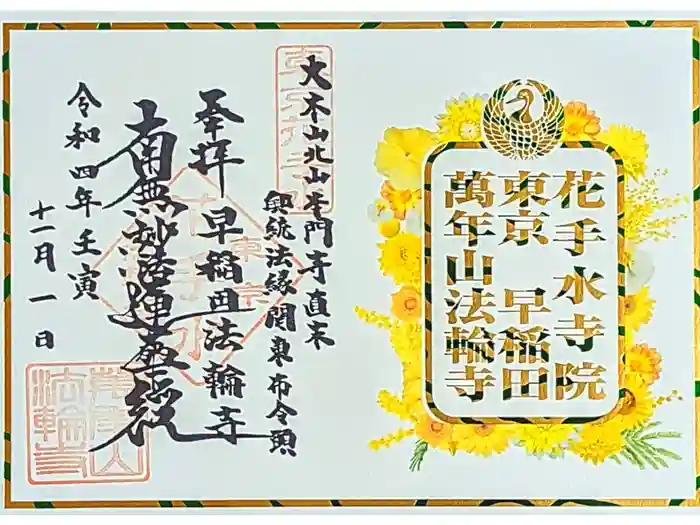 花手水寺院
東京 早稲田
萬年山法輪寺
大本山北山本門寺直末
興統法縁関東布令頭
奉拝 早稲田法輪寺
南無妙法蓮華経
令和四年壬寅
十一月一日
東京